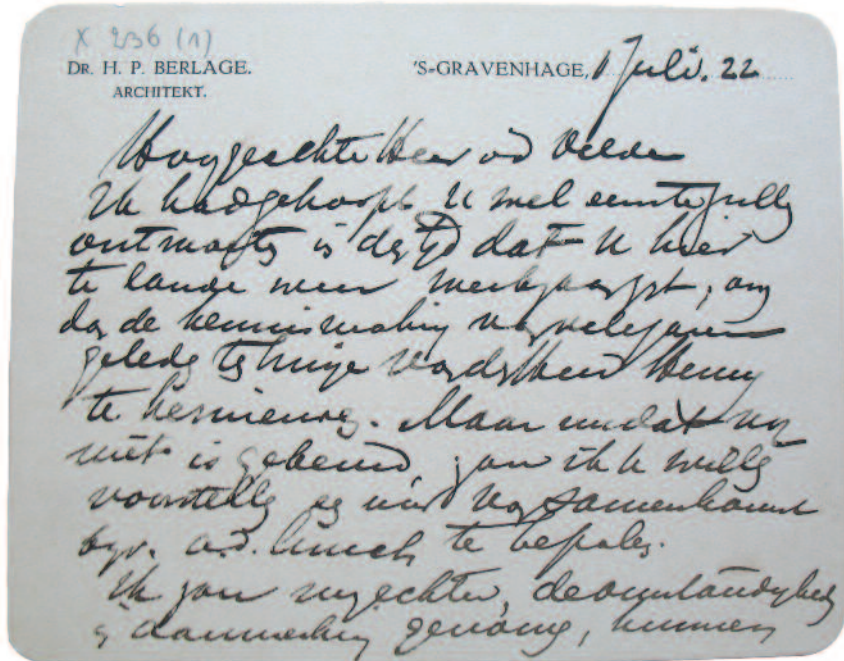 X 236 (1)
DR. H. P. BERLAGE.
ARCHITEKT.
'S-GRAVENHAGE, 1 Juli. 22
Hooggeachte Heer vd Velde
Ik had gehoopt U wel eens te zullen
ontmoeten in den tijd dat U hier
te lande weer werkzaam zijt, om
dan de kennismaking van vele jaren
geleden ten huize van den Heer Henny
te hernieuwen. Maar omdat nu
niet is gebeurd zou ik U willen
voorstellen een uur van samenkomst
bijv. a.d. lunch te bepalen.
Ik zou mij echter, de omstandigheden
in aanmerking genomen, kunnen